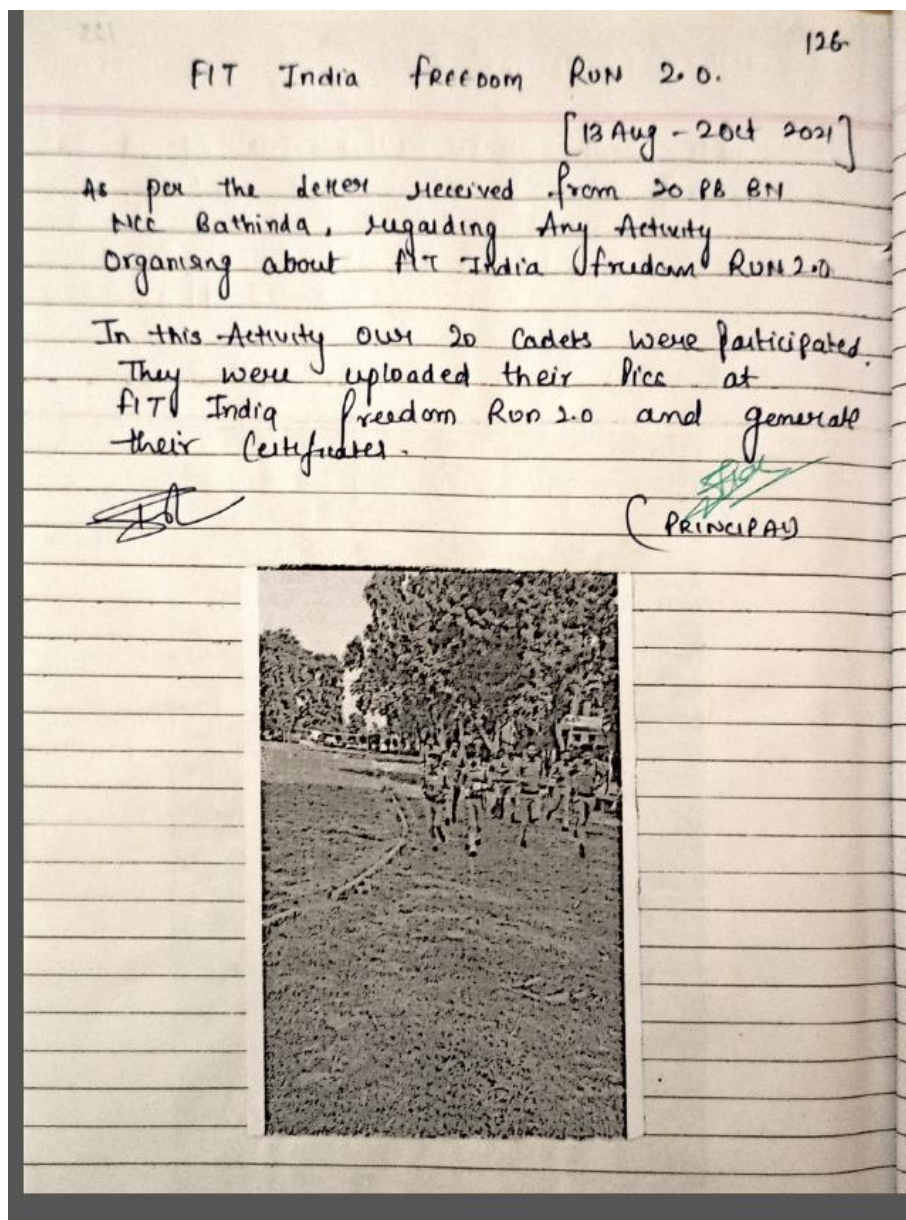 126
FIT India freedom RUN 2.0.
[13 Aug - 2 Oct 2021]
As per the letter received from 20 PB BN
NCC Bathinda, regarding Any Activity
Organising about FIT India freedom RUN 2.0
In this Activity our 20 Cadets were participated.
They were uploaded their Pics at
FIT India freedom Run 2.0 and generate
their Certificates.
(PRINCIPAL)